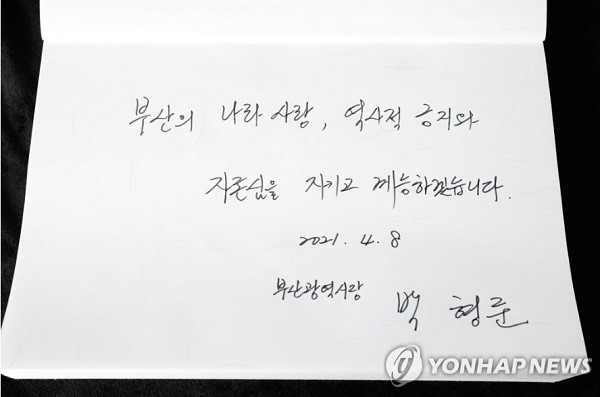 부산의 나라 사랑, 역사적 긍지와
자존심을 지키고 계승하겠습니다.
2021. 4. 8
부산광역시장 박 형 준
YONHAP NEWS